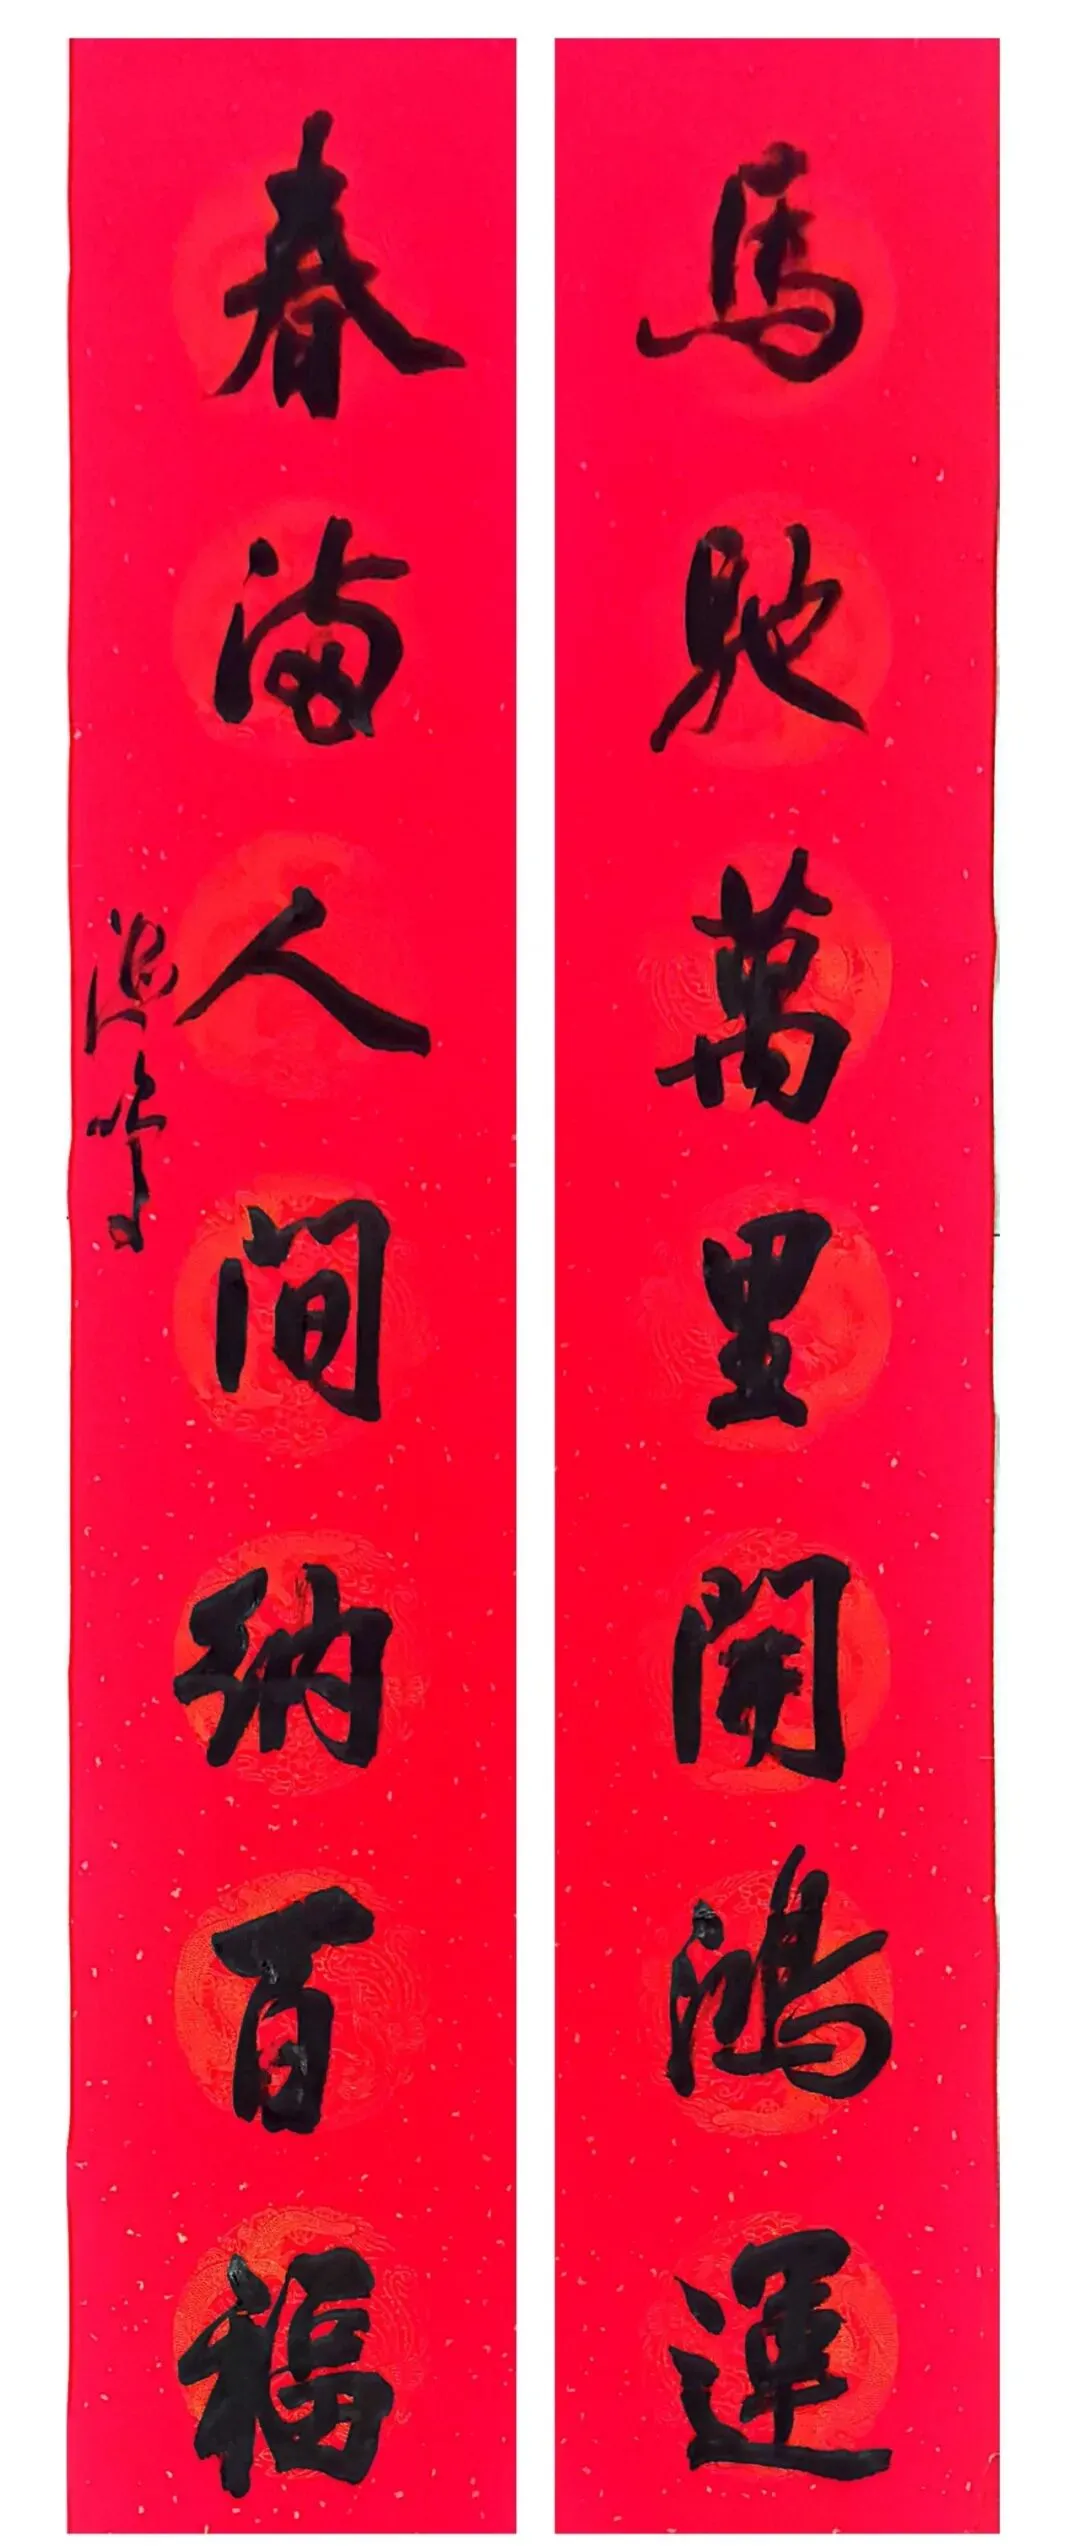 馬馳萬里開鴻運
春滿人間納百福